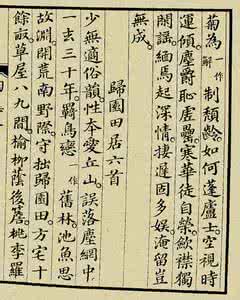 菊為作解制頹齡如何蓬廬士空視時
運傾塵爵恥虛罍寒華徒自榮歛襟獨
閒謡緬焉起深情棲遲固多娛淹留豈
無成
歸園田居六首
少無適俗韻性本愛丘山誤落塵網中
一去三十年羇鳥戀作舊林池魚思
故淵開荒南野際守拙歸園田方宅十
餘畝草屋八九間榆柳蔭後簷桃李羅